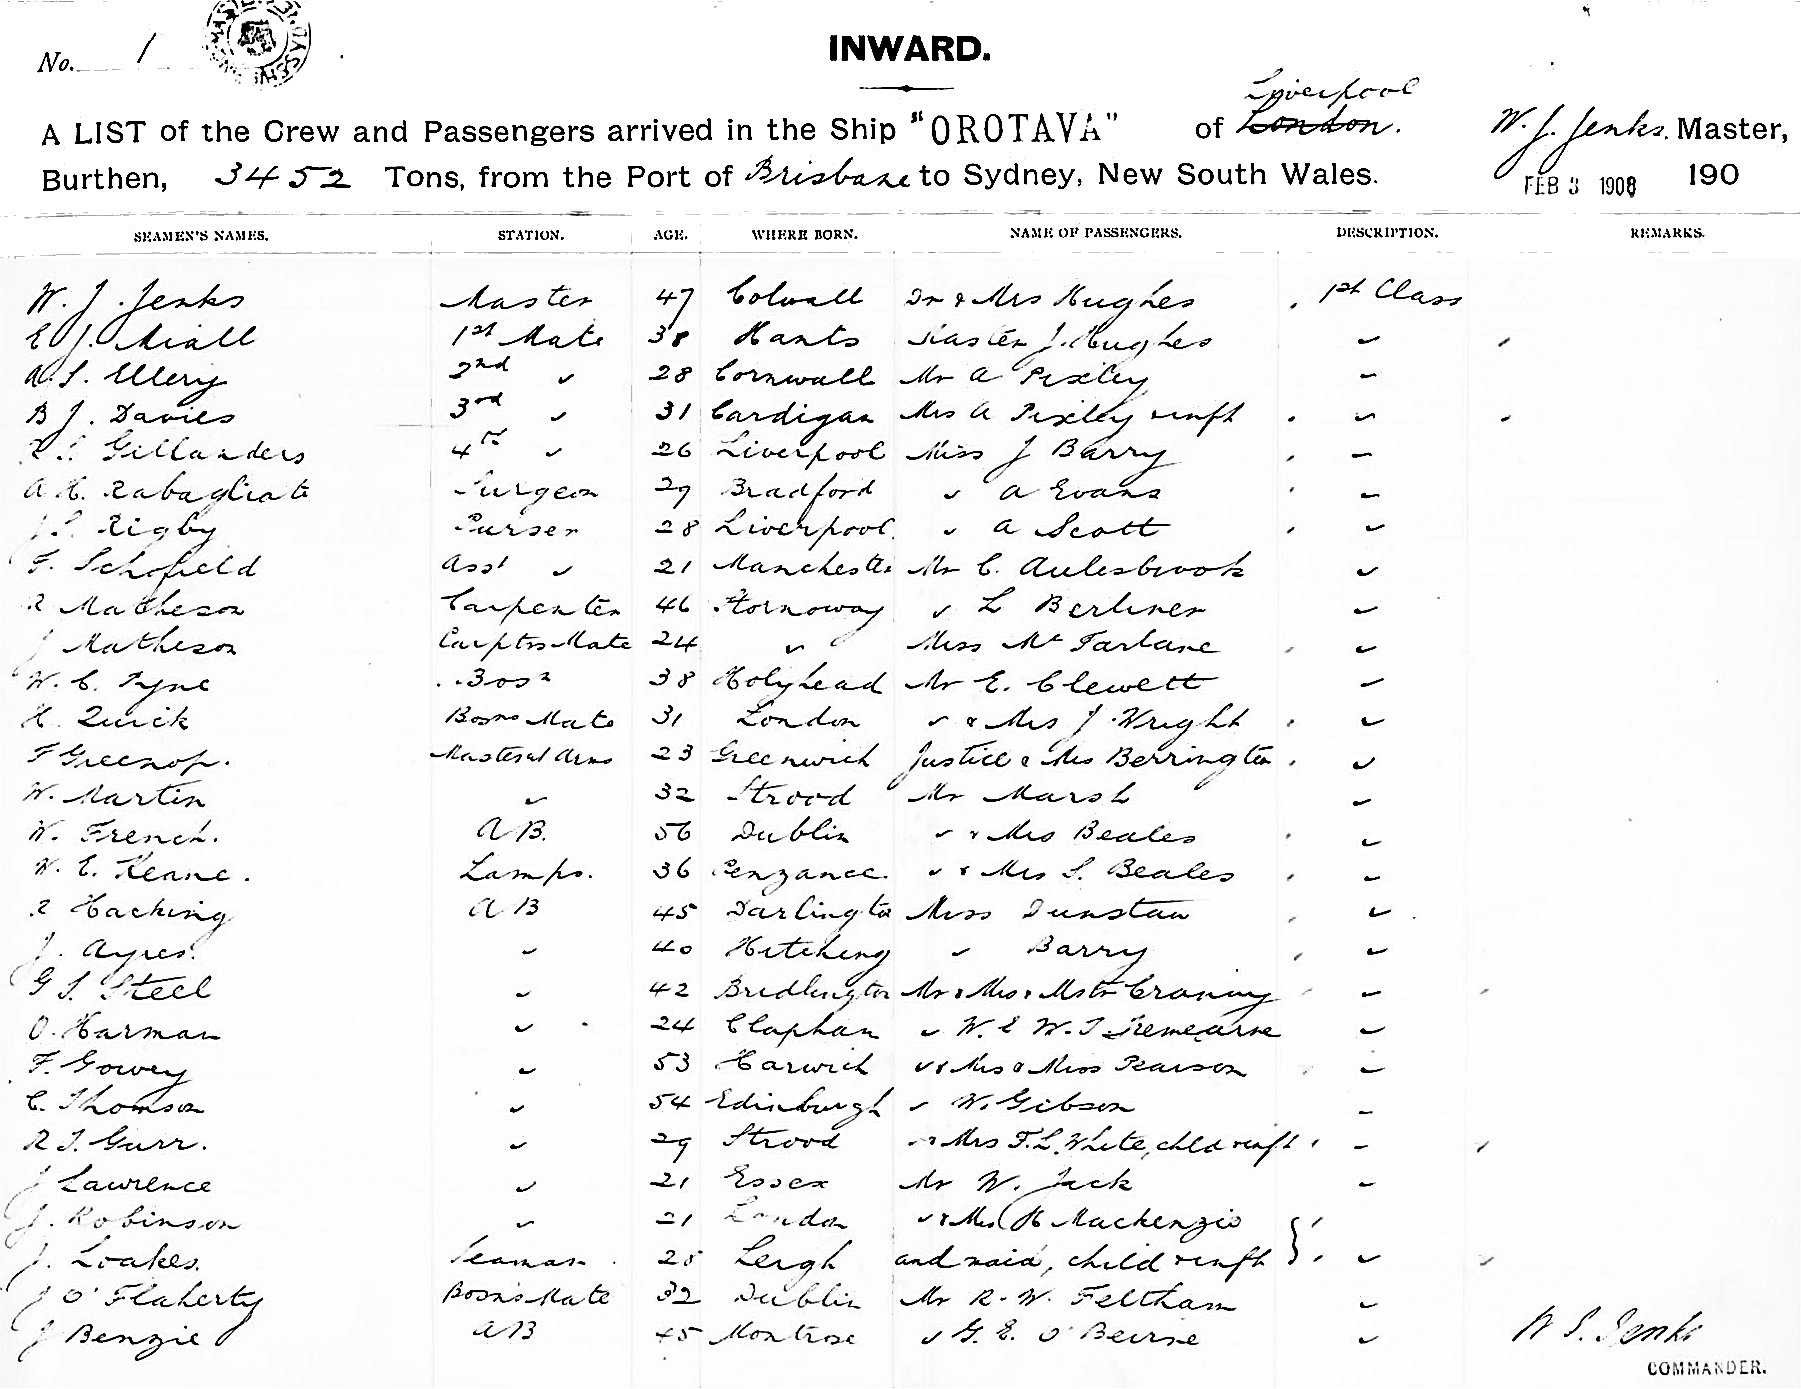 No. 1
INWARD.
Liverpool
A LIST of the Crew and Passengers arrived in the Ship "OROTAVA" of London. W. J. Jenks. Master,
Burthen, 3452 Tons, from the Port of Brisbane to Sydney, New South Wales. FEB 3 1908 190
SEAMEN'S NAMES. STATION. AGE. WHERE BORN. NAME OF PASSENGERS. DESCRIPTION. REMARKS.
W. J. Jenks Master 47 Colwall Dr & Mrs Hughes 1st Class
E J. Miall 1st Mate 38 Hants Master J. Hughes
A. S. Ellery 2nd 28 Cornwall Mr A Pixley
B J. Davies 3rd 31 Cardigan Mrs A Pixley & inft
Gillanders 4th 26 Liverpool Miss J Barry
A H. Rabagliate Surgeon 29 Bradford A Evans
Rigby Purser 28 Liverpool A Scott
F. Schofield Asst 21 Manchester Mr C. Aulesbrook
R Matheson Carpenter 46 Stornoway L Berliner
J Matheson Carptrs Mate 24 Miss Mc Farlane
W. C. Pyne Bosn 38 Holyhead Mr E. Clewett
H. Quick Bosns Mate 31 London & Mrs J. Wright
F Greenop. Master at Arms 23 Greenwich Justice & Mrs Berrington
W. Martin 32 Strood Mr Marsh
W. French. AB. 56 Dublin & Mrs Beales
W. E. Keane. Lamps. 36 Penzance. & Mrs S. Beales
R Hacking AB 45 Darlington Miss Dunstan
J. Ayres. 40 Hitching Barry
G S. Steel 42 Bridlington Mr & Mrs & Mstr Craning
O. Harman 24 Clapham W. & W. J Tremearne
F. Gowey 53 Harwich & Mrs & Miss Pearson
C. Thomson 54 Edinburgh W. Gibson
R J. Gurr. 29 Strood & Mrs F. L. White, chld & inft
J Lawrence 21 Essex Mr W. Jack
J. Robinson 21 London & Mrs H Mackenzie
J. Loakes. Seaman 28 Leigh and maid, child & inft
J O'Flaherty Bosns Mate 32 Dublin Mr R. W. Feltham
J Benzie AB 45 Montrose G. E. O'Beirne
W J. Jenks
COMMANDER.